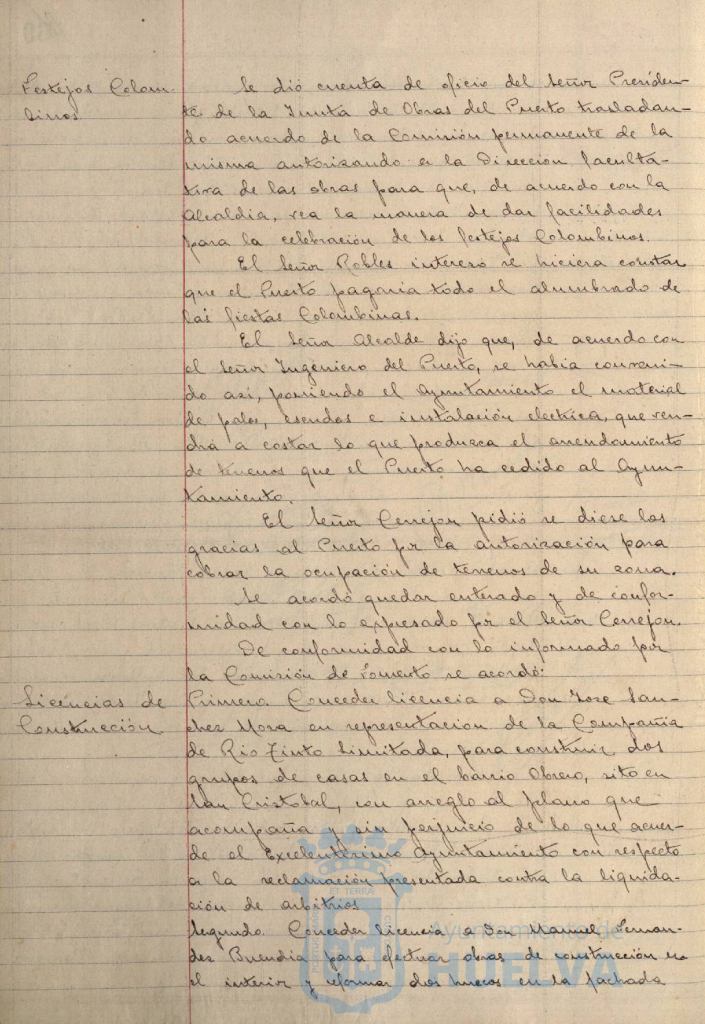 Festejos Colom-
binos
Se dió cuenta de oficio del Señor Presiden-
te de la Junta de Obras del Puerto trasladan-
do acuerdo de la Comisión permanente de la
misma autorizando a la Dirección faculta-
tiva de las obras para que, de acuerdo con la
Alcaldia, vea la manera de dar facilidades
para la celebración de los festejos Colombinos.
El Señor Robles interesó se hiciera constar
que el Puerto pagaria todo el alumbrado de
las fiestas Colombinas.
El Señor Alcalde dijo que, de acuerdo con
el Señor Ingeniero del Puerto, se habia conveni-
do asi, poniendo el Ayuntamiento el material
de palos, escudos e instalación electrica, que ven-
drá a costar lo que produzca el arrendamiento
de terrenos que el Puerto ha cedido al Ayun-
tamiento.
El Señor Cerrejon pidió se diese las
gracias al Puerto por la autorización para
cobrar la ocupación de terrenos de su zona.
Se acordó quedar enterado y de confor-
midad con lo expresado por el Señor Cerrejon.
De conformidad con lo informado por
la Comisión de Fomento se acordó:
Licencias de
Construcción
Primero. Conceder licencia a Don Jose San-
chez Mora en representación de la Compañia
de Rio Tinto Limitada, para construir dos
grupos de casas en el barrio Obrero, sito en
San Cristobal, con arreglo al plano que
acompaña y sin perjuicio de lo que acuer-
de el Excelentisimo Ayuntamiento con respecto
a la reclamación presentada contra la liquida-
ción de arbitrios
Segundo. Conceder licencia a Don Manuel Fernan-
dez Buendia para efectuar obras de construcción en
el interior y reformar dos huecos en la fachada
Ayuntamiento de
HUELVA